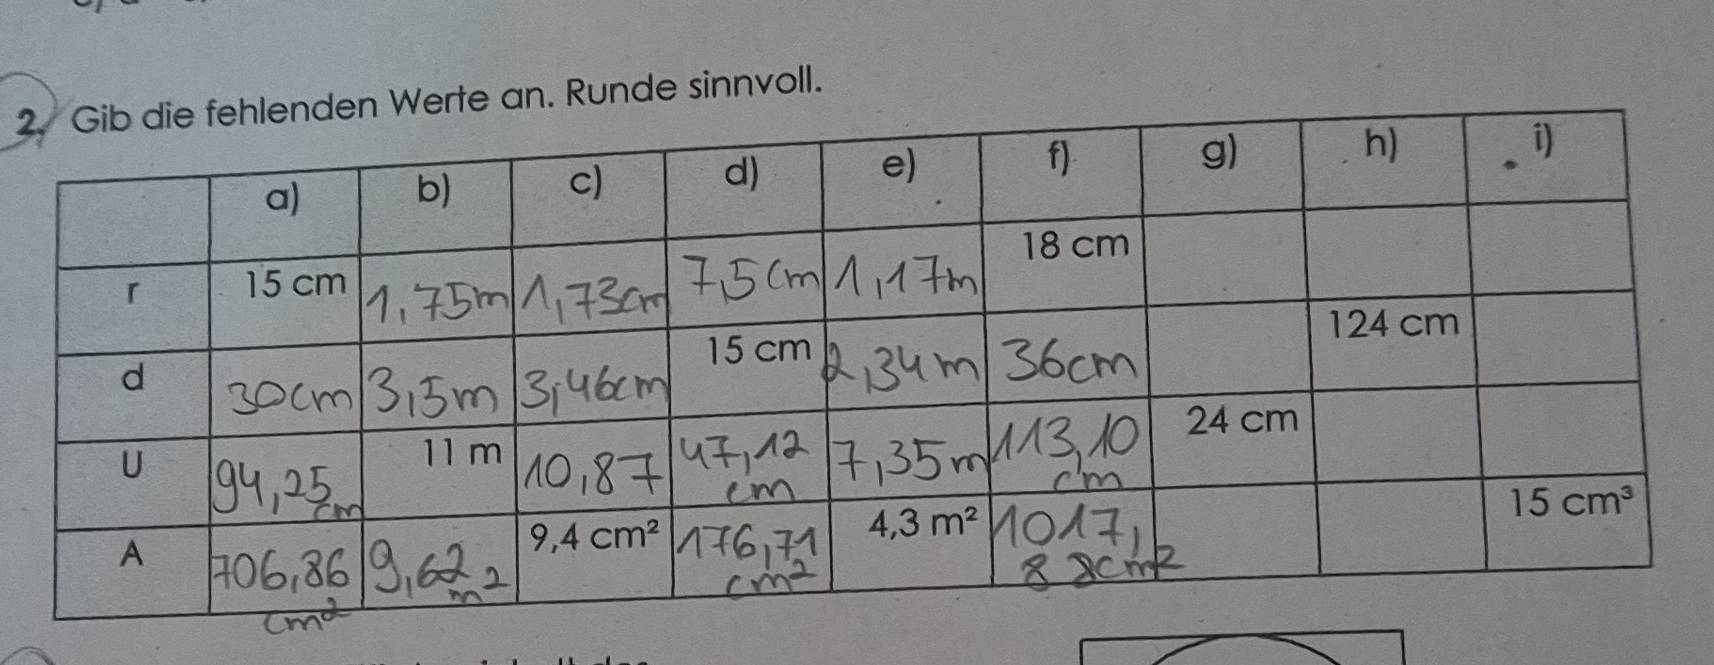 2. Gib die fehlenden Werte an. Runde sinnvoll.
a) b) c) d) e) f) g) h) i)
r 15 cm 1,75m 1,73cm 7,5cm 1,17m 18 cm
d 30cm 3,5m 3,46cm 15 cm 2,34m 36cm 124 cm
U 94,25 cm 11 m 10,87 47,12 cm 7,35m 113,10 cm 24 cm
A 706,86 cm² 9,62 m² 9,4 cm² 176,71 cm² 4,3 m² 1017,88cm² 15 cm³